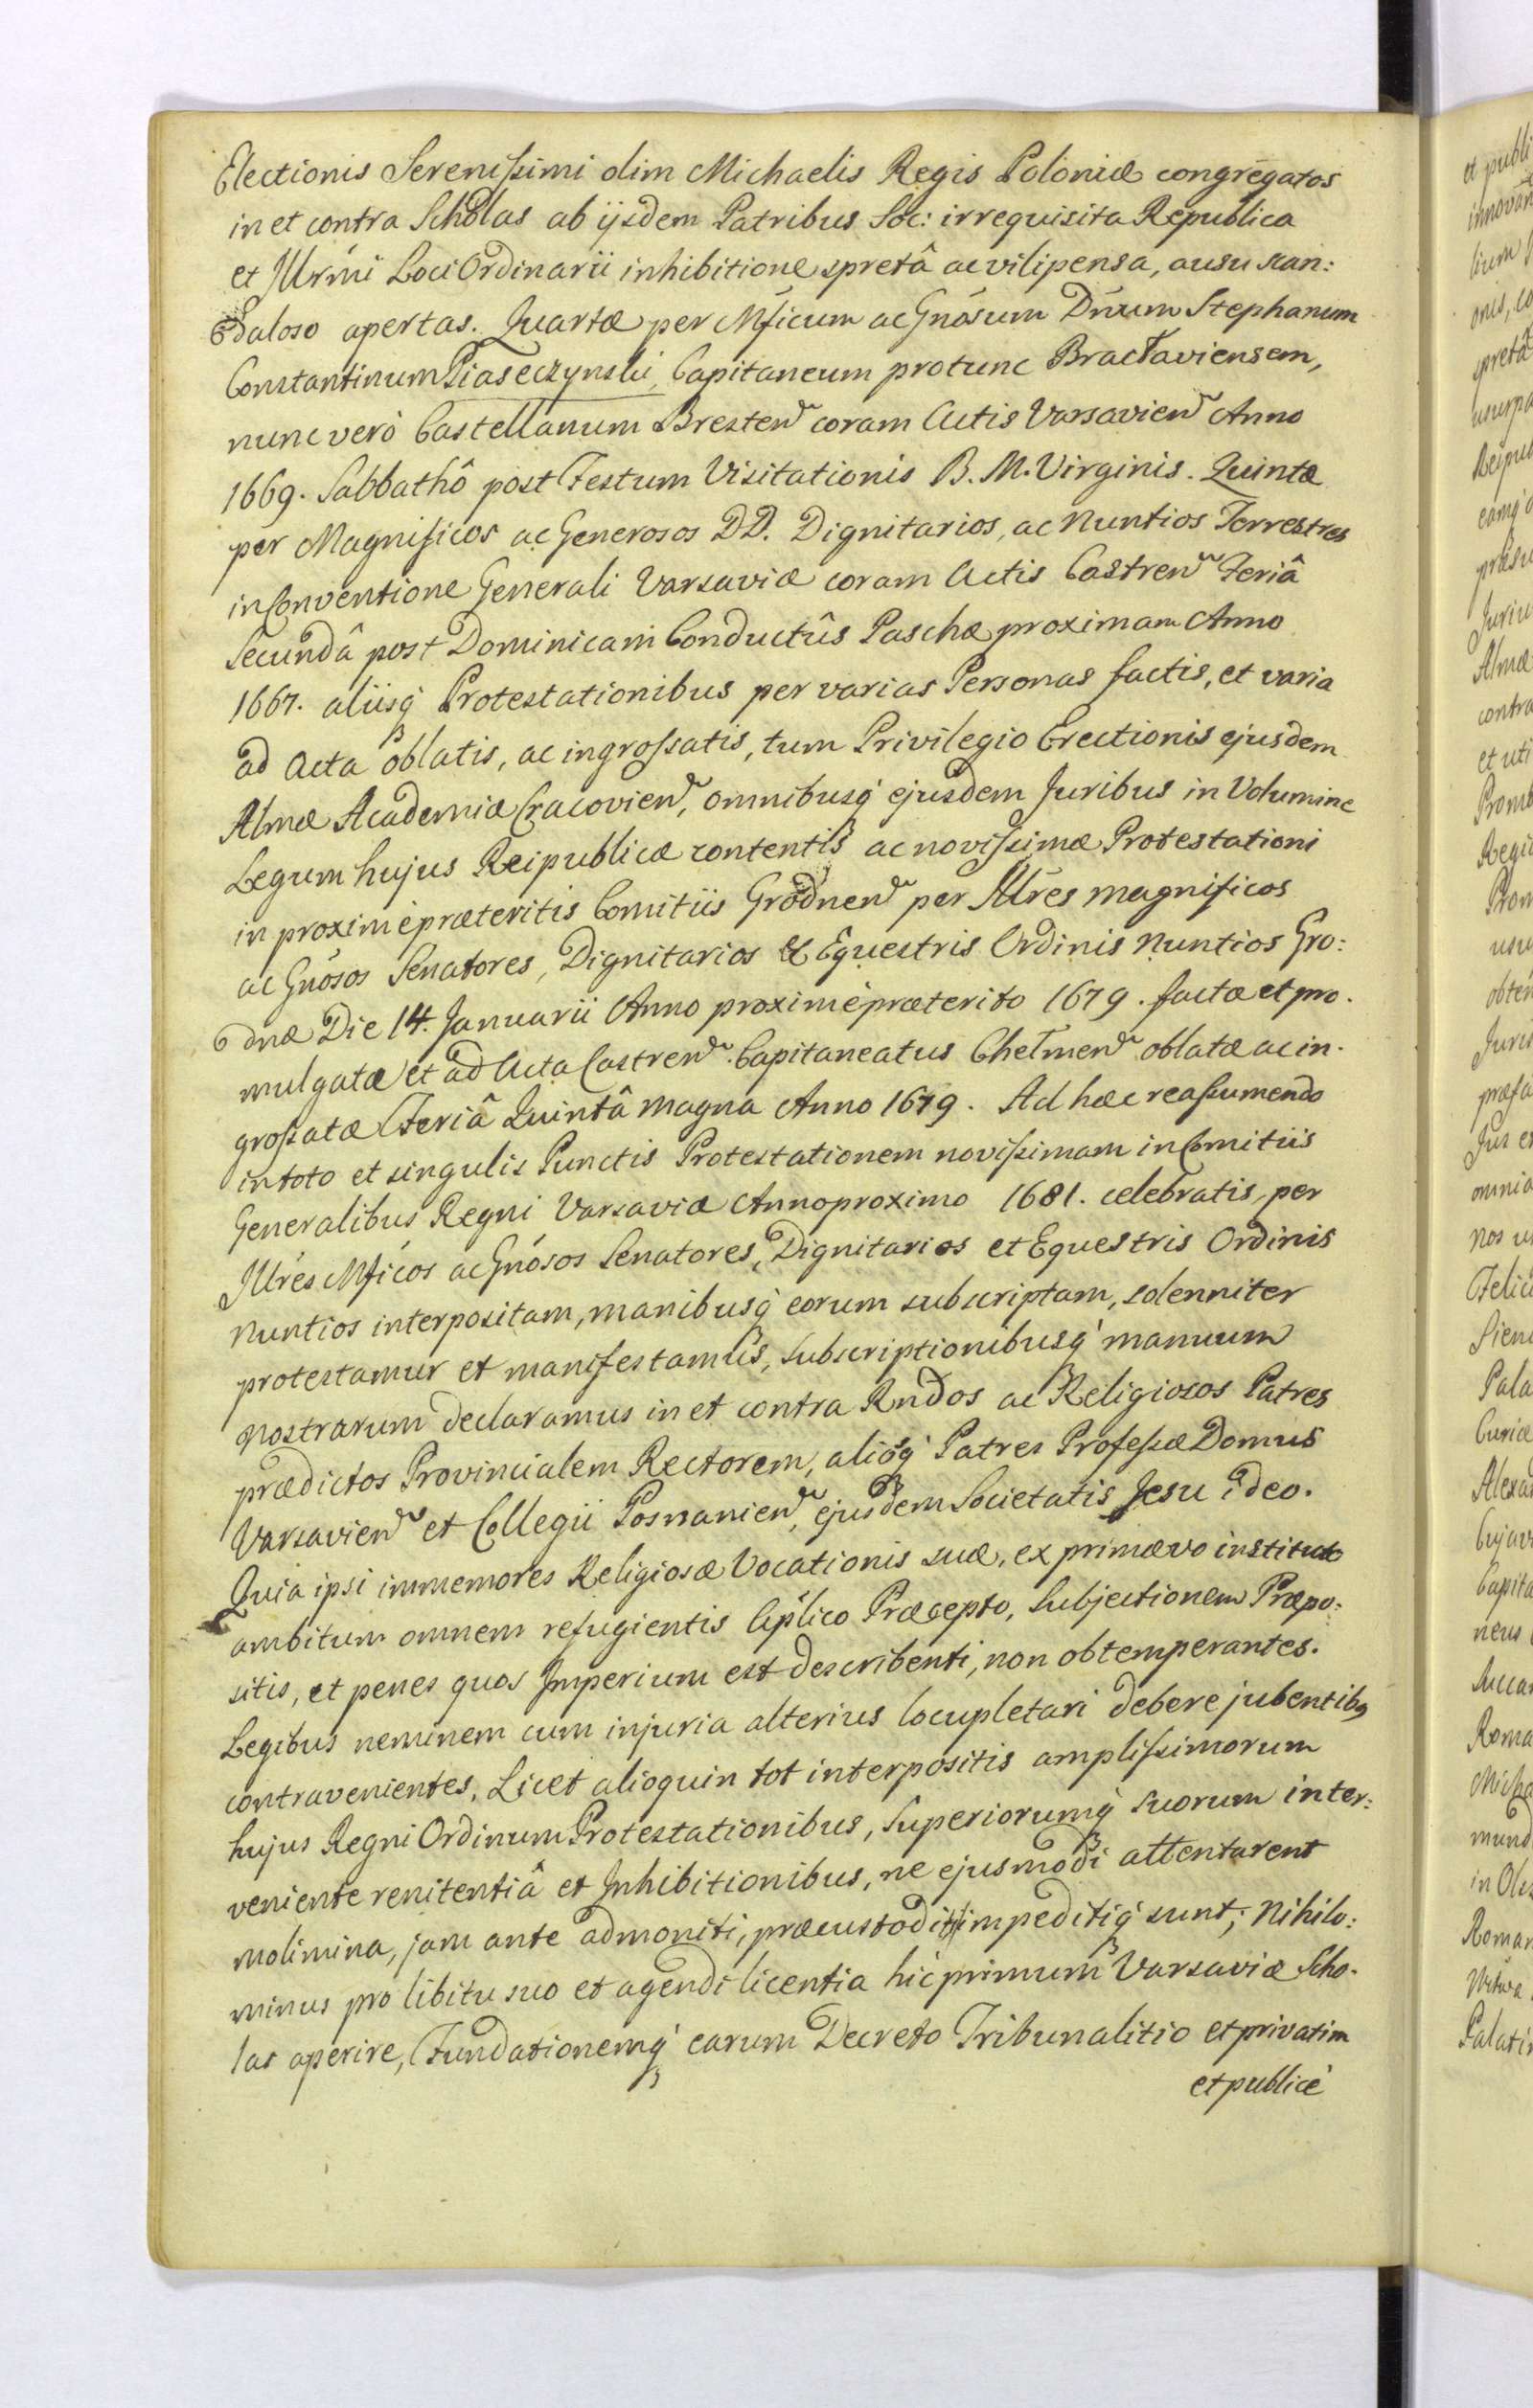 Electionis Serenissimi olim Michaelis Regis Poloniæ congregatos
in et contra Scholas ab ijsdem Patribus Soc: irrequisita Republica
et Illrmi Loci Ordinarii inhibitione spretâ ac vilipensa, ausu scan:
daloso apertas. Quartæ per Mficum ac Gnosum Dnum Stephanum
Constantinum Piaseczynski, Capitaneum protunc Bractaviensem,
nunc verò Castellanum Bresten coram Actis Varsavien Anno
1669. Sabbathô post Festum Visitationis B. M. Virginis. Quintæ
per Magnificos ac Generosos DD. Dignitarios, ac Nuntios Terrestres
in Conventione Generali Varsaviæ coram Actis Castren Feriâ
Secundâ post Dominicam Conductûs Paschæ proximam Anno
1667. aliisq Protestationibus per varias Personas factis, et varia
ad Acta oblatis, ac ingrossatis, tum Privilegio Erectionis ejusdem
Almæ Academiæ Cracovien, omnibusq ejusdem Juribus in Volumine
Legum hujus Reipublicæ contentis ac novissimæ Protestationi
in proximè præteritis Comitiis Grodnen per Illres magnificos
ac Gnosos Senatores, Dignitarios & Equestris Ordinis Nuntios Gro:
dnæ Die 14. Januarii Anno proximè præterito 1679. factæ et pro.
mulgatæ et ad Acta Castren. Capitaneatus Chelmen oblatæ ac in.
grossatæ Feriâ Quintâ magna Anno 1679. Ad hæc reassumendo
in toto et singulis Punctis Protestationem novissimam in Comitiis
Generalibus Regni Varsaviæ Anno proximo 1681. celebratis, per
Illres Mficos ac Gnosos Senatores, Dignitarios et Equestris Ordinis
Nuntios interpositam, manibusq eorum subscriptam, solenniter
protestamur et manifestamus, subscriptionibusq manuum
nostrarum declaramus in et contra Rndos ac Religiosos Patres
prædictos Provincialem Rectorem, aliosq Patres Professæ Domus
Varsavien et Collegii Posnanien, ejusdem Societatis Jesu ideo.
Quia ipsi immemores Religiosæ Vocationis suæ, ex primævo instituto
ambitum omnem refugientis Aplico Præcepto, Subjectionem Præpo:
sitis, et penes quos Imperium est describenti, non obtemperantes.
Legibus neminem cum injuria alterius locupletari debere jubentibq
contravenientes, Licet alioquin tot interpositis amplissimorum
hujus Regni Ordinum Protestationibus, Superiorumq suorum inter:
veniente renitentiâ et Inhibitionibus, ne ejusmodi attentarent
molimina, jam ante admoniti, præcustoditi impeditiq sunt; Nihilo:
minus pro libitu suo et agendi licentia hic primum Varsaviæ Scho.
las aperire, Fundationemq earum Decreto Tribunalitio et privatim
et publicè